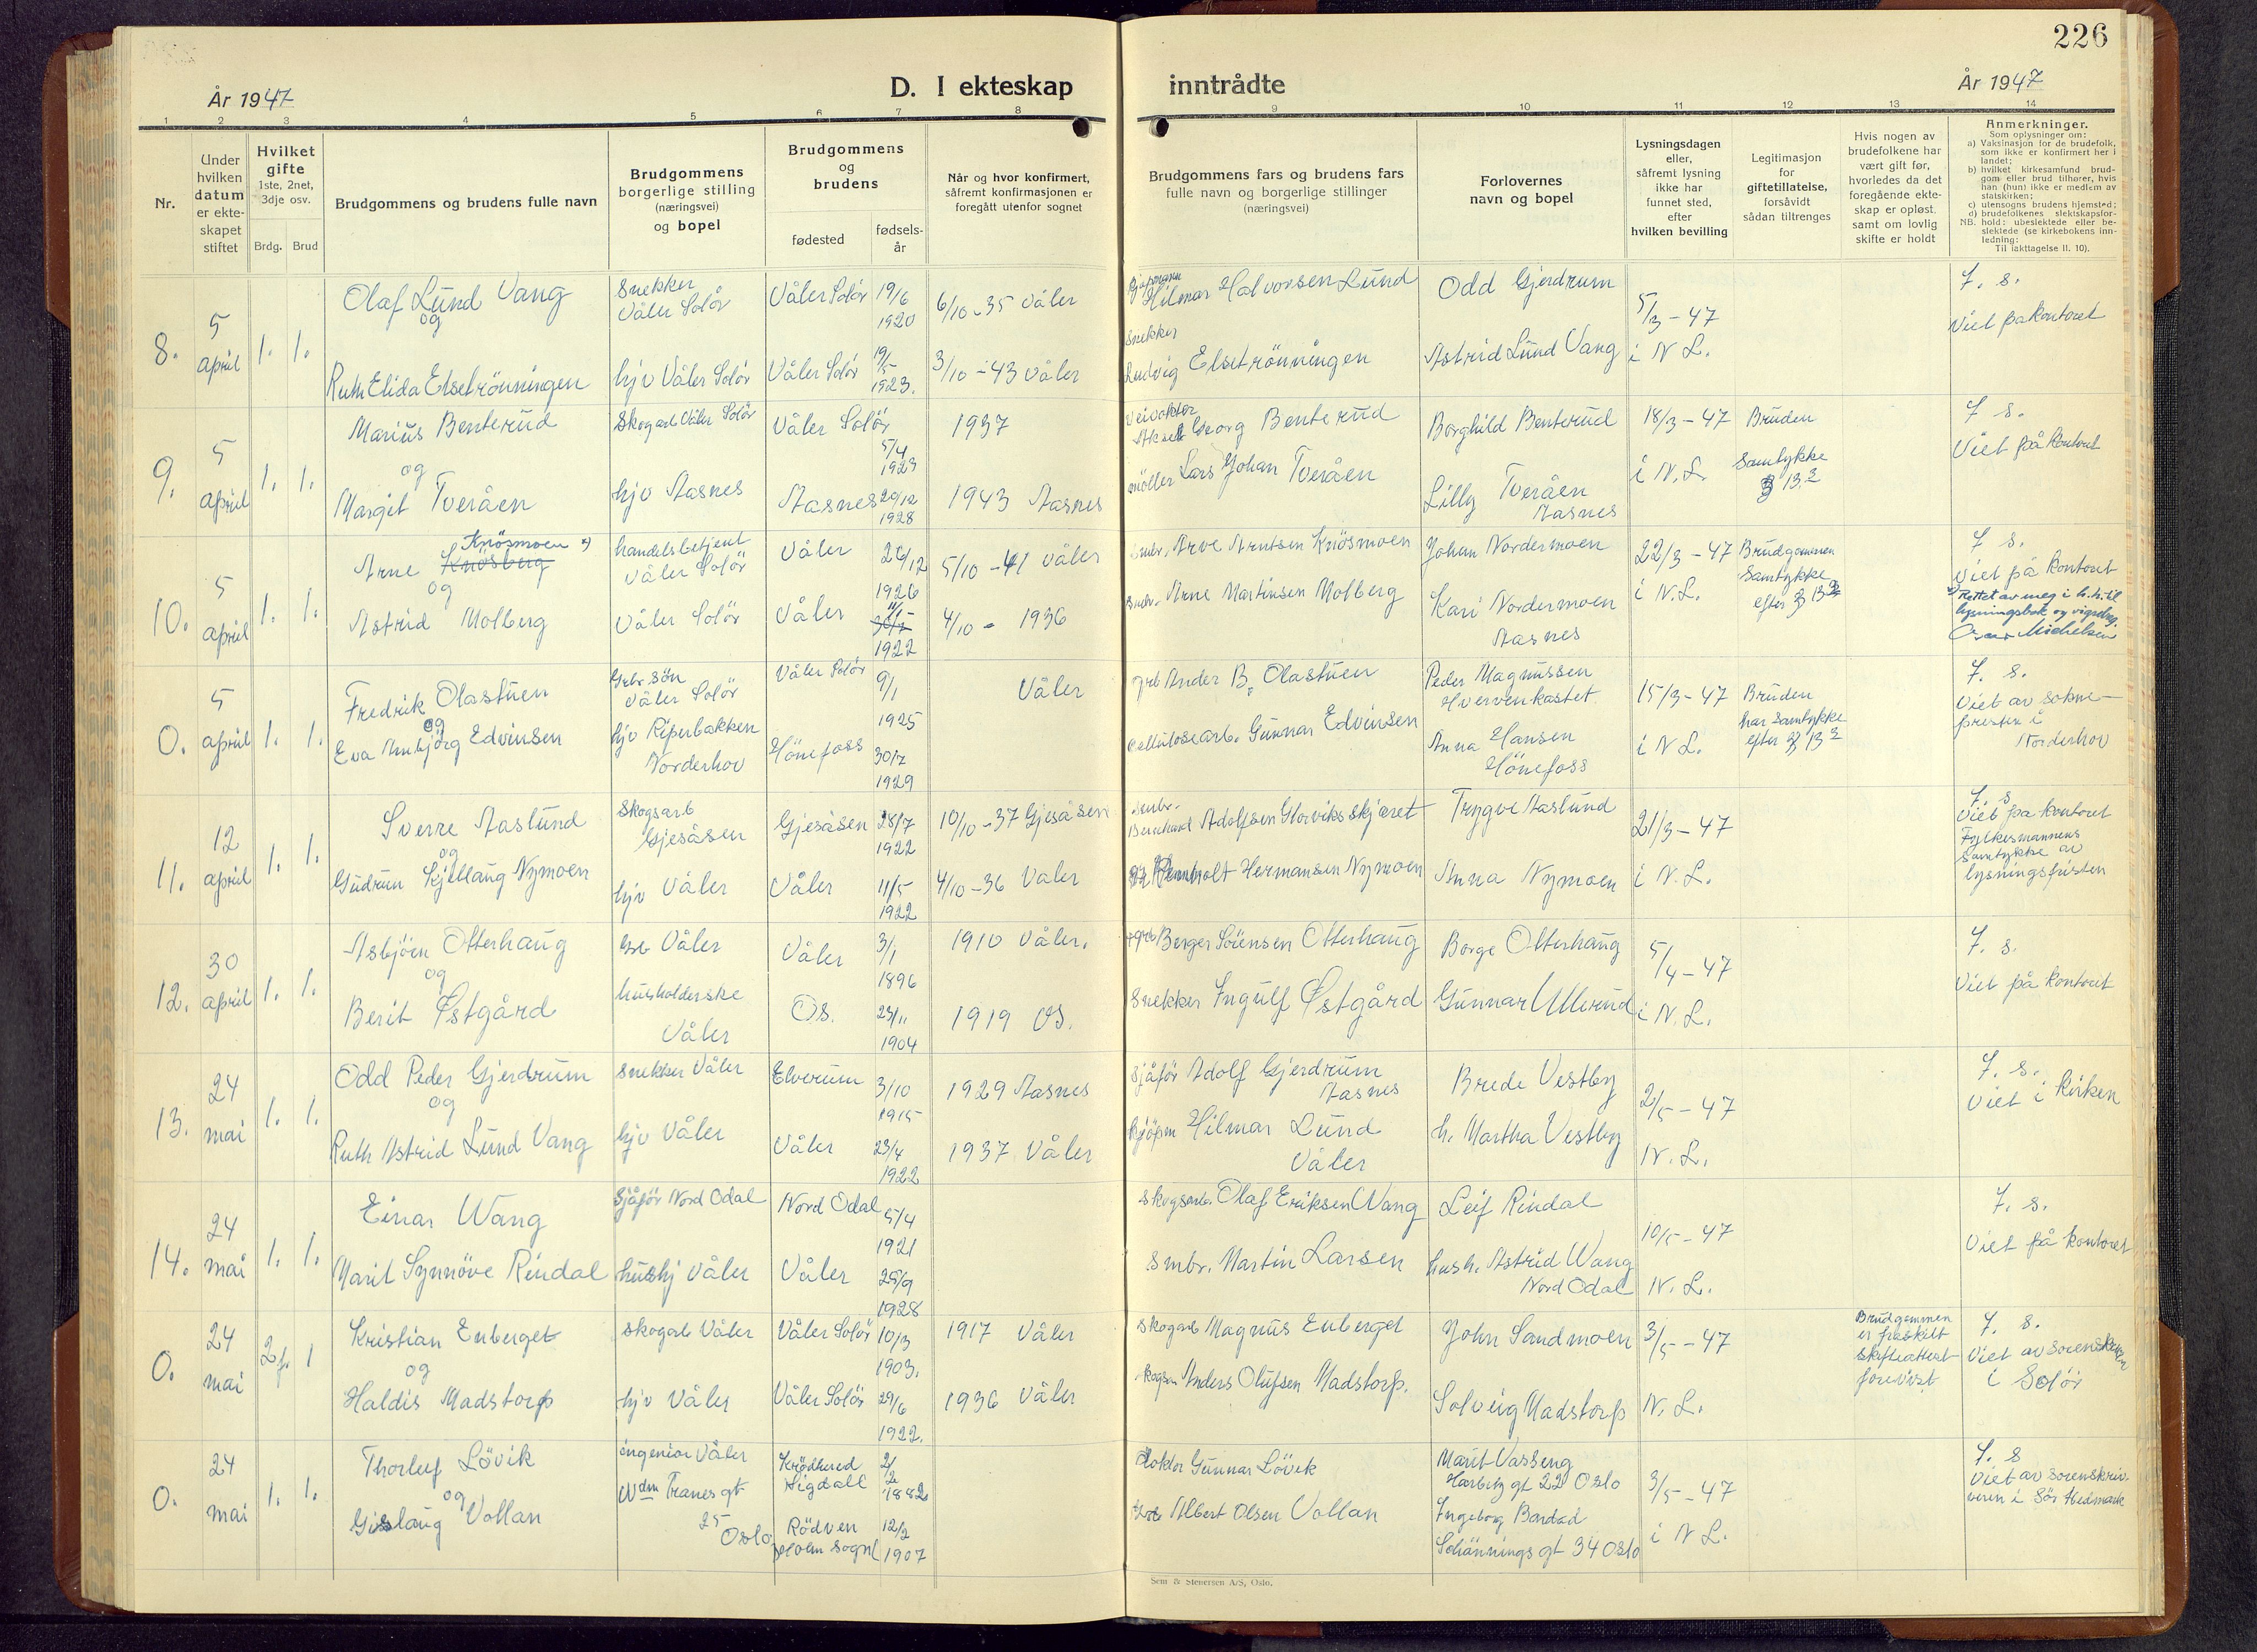 226
År 1947
D. I ekteskap inntrådte
År 1947
1 2 3 4 5 6 7 8 9 10 11 12 13 14
Nr.
Under hvilken datum er ekte-skapet stiftet
Hvilket gifte 1ste, 2net, 3dje osv.
Brdg. Brud
Brudgommens og brudens fulle navn
Brudgommens borgerlige stilling (næringsvei) og bopel
Brudgommens og brudens
fødested
fødsels-år
Når og hvor konfirmert, såfremt konfirmasjonen er foregått utenfor sognet
Brudgommens fars og brudens fars fulle navn og borgerlige stillinger (næringsvei)
Forlovernes navn og bopel
Lysningsdagen eller, såfremt lysning ikke har funnet sted, efter hvilken bevilling
Legitimasjon for giftetillatelse, forsåvidt sådan tiltrenges
Hvis nogen av brudefolkene har vært gift før, hvorledes da det foregående ekte-skap er opløst, samt om lovlig skifte er holdt
Anmerkninger.
Som oplysninger om:
a) Vaksinasjon for de brudefolk, som ikke er konfirmert her i landet;
b) hvilket kirkesamfund brud-gom eller brud tilhører, hvis han (hun) ikke er medlem av statskirken;
c) utensogns brudens hjemsted;
d) brudefolkenes slektskapsfor-hold: ubeslektede eller be-slektede (se kirkebokens inn-ledning:
NB.
Til iakttagelse II. 10).
8. 5 april 1. 1.
Olaf Lund Vang
og
Ruth Elida Elsetrönningen
Snekker Våler Solör
hjv Våler Solör
Våler Solör 19/6 1920
Våler Solör 19/5 1923.
6/10-35 Våler
3/10-43 Våler
Hilmar Halvorsen Lund
Snekker Ludvig Elsetrönningen
Odd Gjerdrum
Astrid Lund Vang
5/3-47 i N L.
f. s.
Viet på kontoret
9. 5 april 1. 1.
Marius Benterud
og
Margit Tveråen
Skogarb Våler Solör
hjv Aasnes
Våler Solör 5/4 1923
Aasnes 20/12 1928
1937
1943 Aasnes
Veivokter Georg Benterud
möller Lars Johan Tveråen
Borghild Benterud
Lilly Tveråen Aasnes
18/3-47 i N.L.
Bruden Samtykke § 13.2
f s.
Viet på kontoret
10. 5 april 1. 1.
Knösmoen
Arne Knösberg
og
Astrid Molberg
handelsbetjent Våler Solör
Våler Solör
Våler 26/12 1926
Våler 11/5 1922
5/10-41 Våler
4/10- 1936
Smbr. Arve Arntsen Knösmoen
Smbr. Arne Martinsen Molberg
Johan Nordermoen
Kari Nordermoen Aasnes
22/3-47 i N.L.
Brudgommen Samtykke efter § 13 2
f s.
Viet på kontoret
Rettet av meg i h. h. til lysningsbok og
Michelsen
0. 5 april 1. 1.
Fredrik Olastuen
og
Eva Ambjörg Edvinsen
Grbr. sön Våler Solör
hjv Riperbakken Norderhov
Våler Solör 9/1 1925
Hönefoss 30/7 1929
Våler
Ander B. Olastuen
Cellulosearb. Gunnar Edvinsen
Peder Magnussen Hvervenkastet
Anna Hansen Hönefoss
15/3-47 i N L.
Bruden har samtykke efter § 13 2
f. s.
Viet av sokne-presten i Norderhov
11. 12 april 1. 1.
Sverre Aaslund
og
Gudrun Kjellaug Nymoen
Skogsarb Gjesåsen
hjv Våler
Gjesåsen 28/7 1922
Våler 11/5 1922
10/10-37 Gjesåsen
4/10-36 Våler
Smbr. Bernhard Adolfsen Glorviksskjæret
Hermansen Nymoen
Trygve Aaslund
Anna Nymoen
21/3-47 i N.L.
f. s
Viet på kontoret
Fylkesmannens samtykke av lysningsfristen
12. 30 april 1. 1.
Asbjörn Otterhaug
og
Berit Østgård
Grb Våler
husholderske Våler
Våler 3/1 1896
Os. 23/11 1904
1910 Våler.
1919 Os.
Berger Sörensen Otterhaug
Snekker Ingulf Østgård
Borge Otterhaug
Gunnar Ullerud
5/4-47 i N.L.
f. s.
Viet på kontoret
13. 24 mai 1. 1.
Odd Peder Gjerdrum
og
Ruth Astrid Lund Vang
Snekker Våler
hjv Våler
Elverum 3/10 1915
Våler 23/4 1922
1929 Aasnes
1937 Våler
Sjåför Adolf Gjerdrum Aasnes
kjöpm Hilmar Lund Våler
Brede Vestby
h. Martha Vestby
2/5-47 N.L.
f. s.
Viet i kirken
14. 24 mai 1. 1.
Einar Wang
Marit Synnöve Rindal
Sjåför Nord Odal
hushj Våler
Nord Odal 5/4 1921
Våler 25/9 1928
Skogsarb. Olaf Eriksen Wang
Smbr. Martin Larsen
Leif Rindal
hush. Astrid Wang Nord Odal
10/5-47 N. L.
f. s.
Viet på kontoret
0. 24 mai 2 f. 1
Kristian Enberget
og
Haldis Madstorp
Skogarb Våler
hjv Våler
Våler Solör 10/3 1903.
Våler Solör 29/6 1922.
1917 Våler
1936 Våler
Skogarb Magnus Enberget
Anders Olufsen Madstorp.
John Sandmoen
Solveig Madstorp
3/5-47 N. L.
Brudgommen er fraskilt skifteattest forevist
f. s.
Viet av sorenskriveren i Solör
0. 24 mai 1. 1.
Thorluf Lövik
og
Gislaug Vollan
ingeniør Våler
Wdm Tranes gt 25 Oslo
Krödhered Sigdall 2/2 1882
Rödven Holm Sogn 12/2 1907
Doktor Gunnar Lövik
Albert Olsen Vollan
Marit Vasseng
Harbitz gt 22 Oslo
Ingeborg Bardad
Schönnings gt 34 Oslo
3/5-47 i N L.
f. s
Viet av sorenskriv-veren i Sör Hedmark
Sem & Stenersen A/S, Oslo.